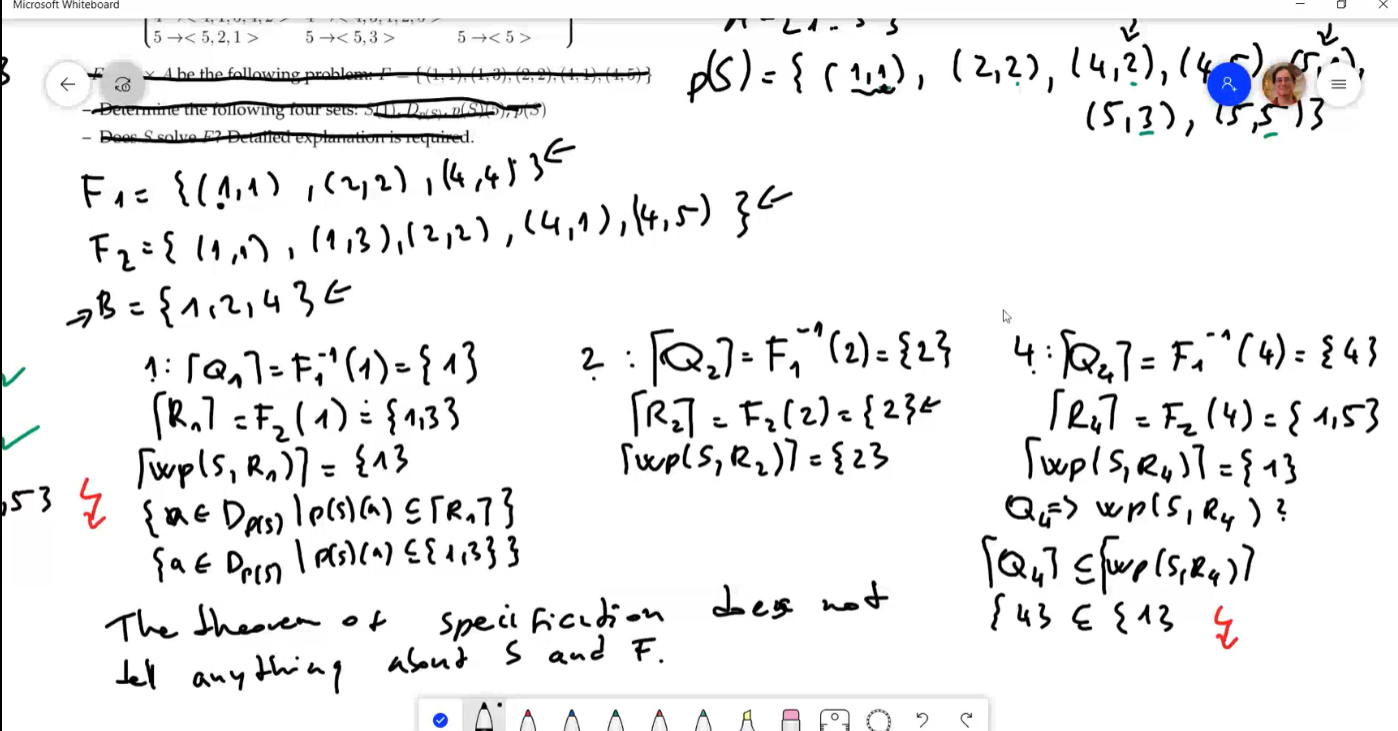 Microsoft Whiteboard
5 →< 5, 2, 1 > 5 →< 5, 3 > 5 →< 5 >
× A be the following problem: F = {(1,1),(1,3),(2,2),(4,1),(4,5)}
– Determine the following four sets: p(S)
– Does S solve F? Detailed explanation is required.
p(S) = { (1,1), (2,2), (4,2), (4,5),
(5,3), (5,5)}
F1 = {(1,1), (2,2), (4,4)} ←
F2 = { (1,1), (1,3), (2,2), (4,1), (4,5) } ←
→ B = {1,2,4} ←
1: ⌈Q1⌉ = F1⁻¹(1) = {1}
⌈R1⌉ = F2(1) = {1,3}
⌈wp(S, R1)⌉ = {1}
{a ∈ Dp(S) | p(S)(a) ⊆ ⌈R1⌉}
{a ∈ Dp(S) | p(S)(a) ⊆ {1,3}}
2: ⌈Q2⌉ = F1⁻¹(2) = {2}
⌈R2⌉ = F2(2) = {2} ←
⌈wp(S, R2)⌉ = {2}
4: ⌈Q4⌉ = F1⁻¹(4) = {4}
⌈R4⌉ = F2(4) = {1,5}
⌈wp(S, R4)⌉ = {1}
Q4 => wp(S, R4) ?
⌈Q4⌉ ⊆ ⌈wp(S, R4)⌉
{4} ⊆ {1}
The theorem of specification does not
tell anything about S and F.